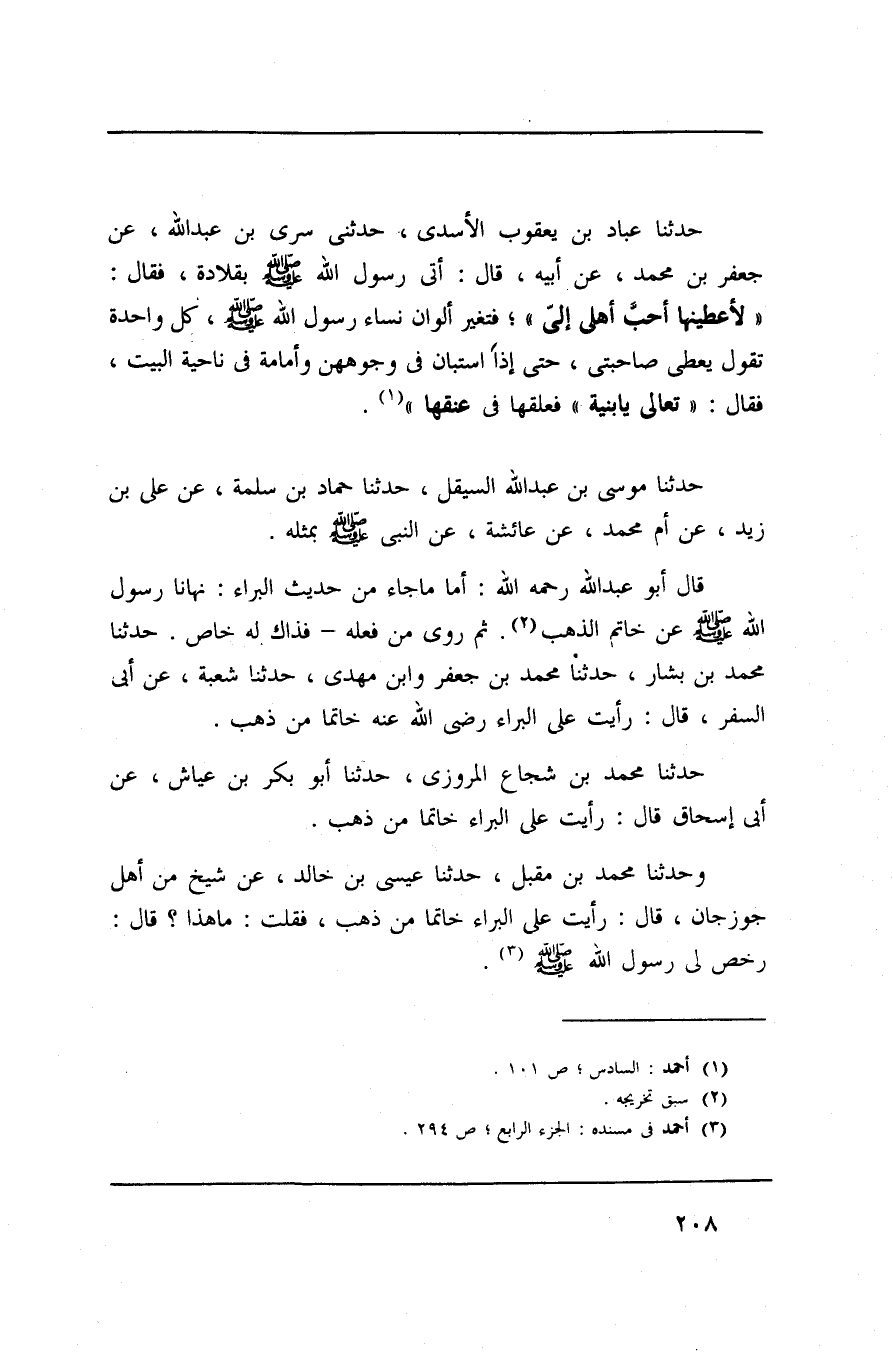 حدثنا عباد بن يعقوب الأسدى ، حدثنى سرى بن عبدالله ، عن
جعفر بن محمد ، عن أبيه ، قال : أتى رسول الله ﷺ بقلادة ، فقال :
« لأعطينها أحبَّ أهلى إلىّ » ؛ فتغير ألوان نساء رسول الله ﷺ ، كل واحدة
تقول يعطى صاحبتى ، حتى إذا استبان فى وجوههن وأمامة فى ناحية البيت ،
فقال : « تعالى يابنية » فعلقها فى عنقها »(١) .
حدثنا موسى بن عبدالله السيقل ، حدثنا حماد بن سلمة ، عن على بن
زيد ، عن أم محمد ، عن عائشة ، عن النبى ﷺ بمثله .
قال أبو عبدالله رحمه الله : أما ماجاء من حديث البراء : نهانا رسول
الله ﷺ عن خاتم الذهب(٢) . ثم روى من فعله – فذاك له خاص . حدثنا
محمد بن بشار ، حدثنا محمد بن جعفر وابن مهدى ، حدثنا شعبة ، عن أبى
السفر ، قال : رأيت على البراء رضى الله عنه خاتما من ذهب .
حدثنا محمد بن شجاع المروزى ، حدثنا أبو بكر بن عياش ، عن
أبى إسحاق قال : رأيت على البراء خاتما من ذهب .
وحدثنا محمد بن مقبل ، حدثنا عيسى بن خالد ، عن شيخ من أهل
جوزجان ، قال : رأيت على البراء خاتما من ذهب ، فقلت : ماهذا ؟ قال :
رخص لى رسول الله ﷺ (٣) .
(١) أحمد : السادس ؛ ص ١٠١ .
(٢) سبق تخريجه .
(٣) أحمد فى مسنده : الجزء الرابع ؛ ص ٢٩٤ .
٢٠٨